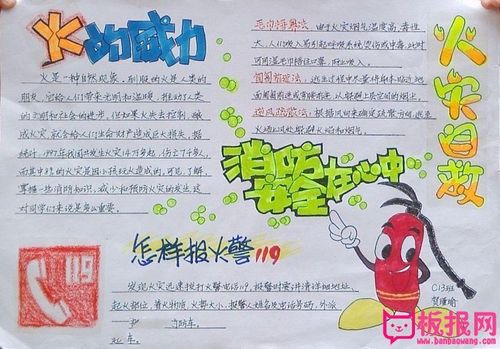 火的威力
火是一种自然现象，驯服的火是人类的
朋友，它给人们带来光明和温暖，推动了人类
的文明和社会的进步。但如果火失去控制，酿
成火灾，就会给人们生命财产造成巨大损失。据
统计，1997年我国共发生火灾14万多起，伤亡7千余人，
而其中8%的火灾是因小孩玩火造成的。可见，了解、
掌握一些消防知识，减少和预防火灾的发生，这
对同学们来说是多么重要。
毛巾捂鼻法：由于火灾烟气温度高、毒性
大，人们吸入后引起呼吸系统烫伤或中毒，此时
可用湿毛巾捂住口鼻，防止吸入。
匍匐前进法：逃生过程中尽量将身体贴近地
面匍匐前进或弯腰前进，以躲避上层空间的烟尘。
逆风疏散法：根据风向来确定疏散方向，逃至
火场上风处躲避火焰和烟气。
火灾自救
消防
安全在心中
怎样报火警119
119
发现火灾迅速拨打火警电话119，报警时要讲清详细地址、
起火部位、着火物质、火势大小、报警人姓名及电话号码，并派
消防车。
C13班
板报网
www.banbaowang.com